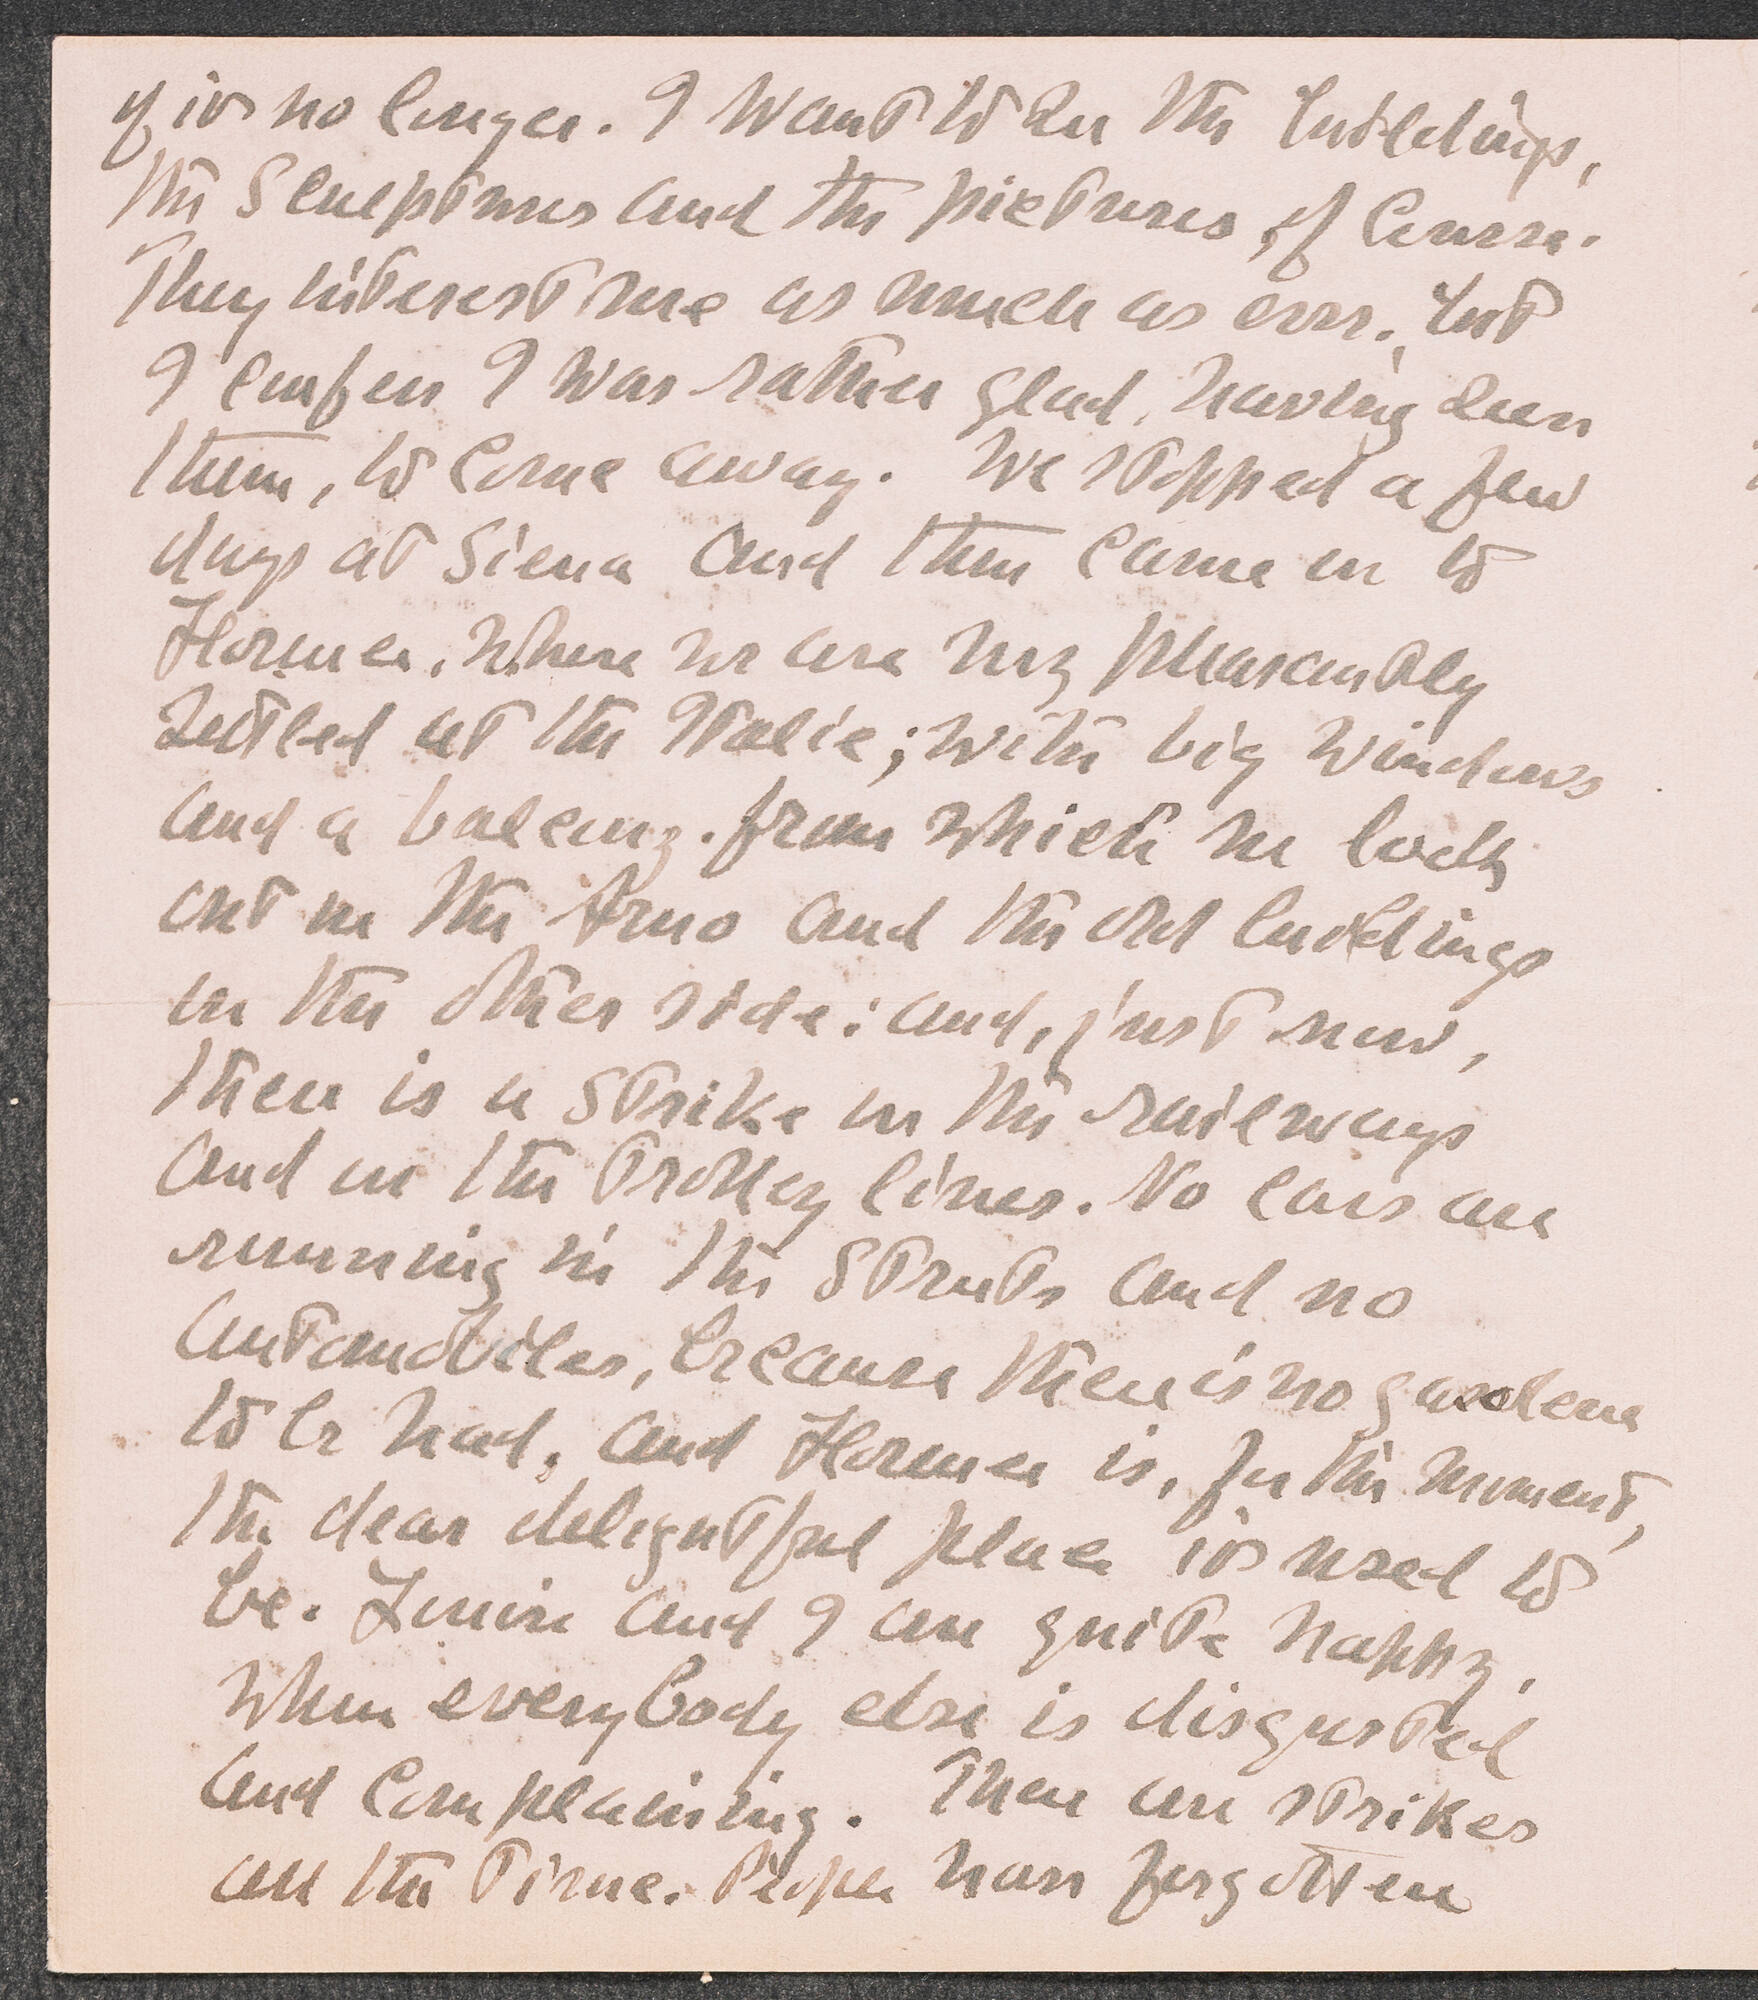 of it no longer. I want to see the buildings,
the sculptures and the pictures, of course.
They interest me as much as ever, but
I confess I was rather glad, having seen
them, to come away. We stopped a few
days at Siena and then came on to
Florence, where we are very pleasantly
settled at the Italie; with big windows
and a balcony from which we look
out on the Arno and the old buildings
on the other side: and, just now,
there is a strike on the railways
and on the trolley lines. No cars are
running in the streets and no
automobiles, because there is no gasolene
to be had, and Florence is, for the moment,
the dear delightful place it used to
be. Louise and I are quite happy,
when everybody else is disgusted
and complaining. There are strikes
all the time. People have forgotten